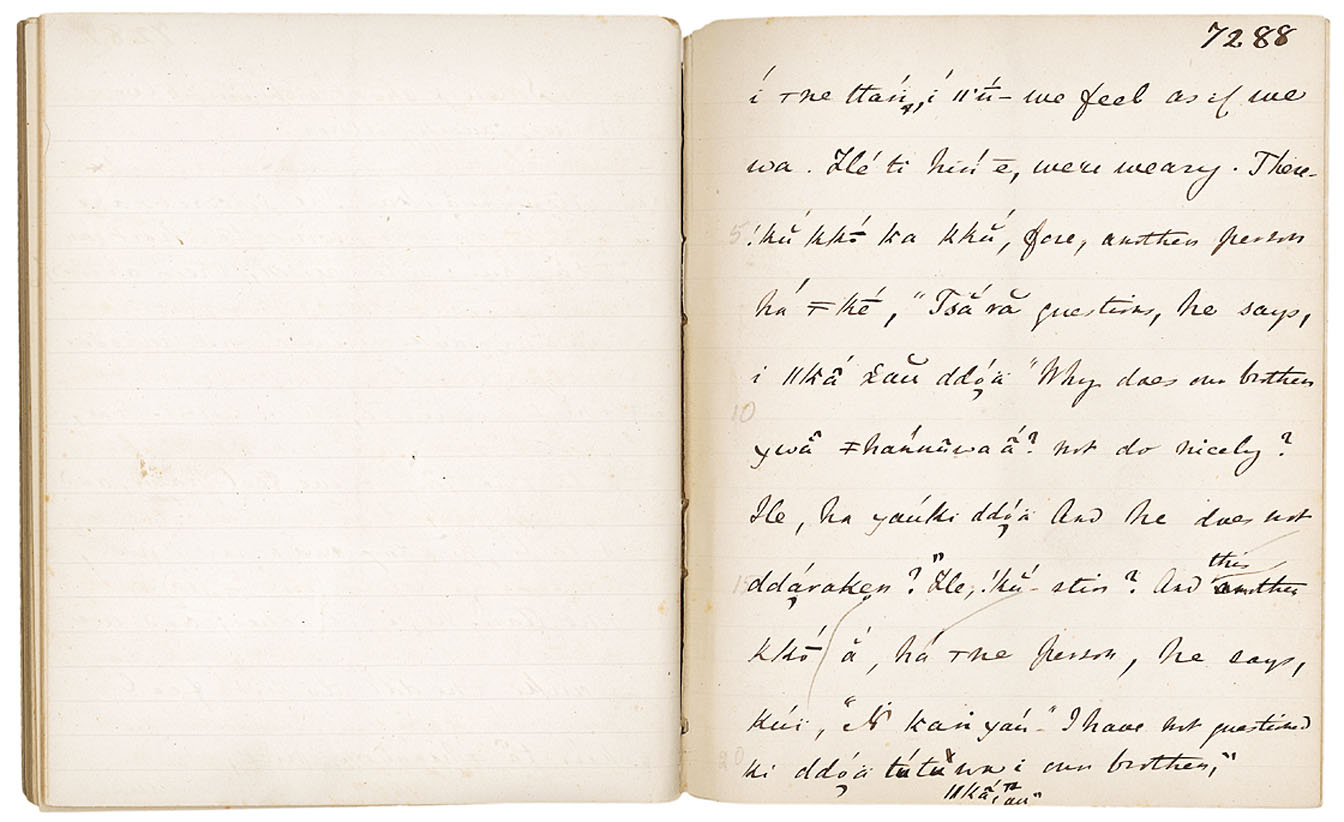 7288
í ꞊ne ttań, í ǁ'ŭ- we feel as if we
wa. Hé ti hiń ē, were weary. There-
5 !kŭ kkŏ́ ka kkŭ́, fore, another person
há ≠ké, "Tsā́ rā questions, he says,
i ǁkā́ ddóä "Why does our brother
10
ywā ≠hańnūwa ā́? not do nicely?
He, ha yaúki ddóä And he does not
this
15 ddáraken? "He, !kŭ́- stir? And another
kkŏ́ ā́, há ꞊ne person, he says,
kúï, "Ń kań yaú- "I have not questioned
20 ki ddóä tútúwa i our brother,"
ǁkā́,